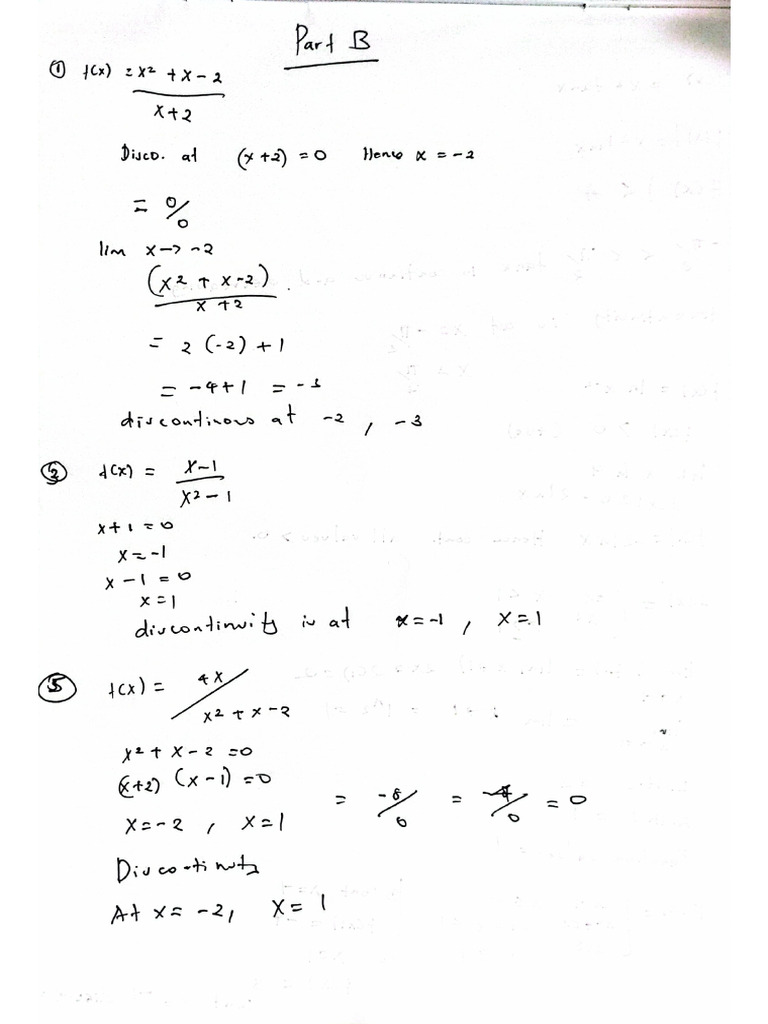 Part B
① f(x) = x² + x - 2
x + 2
Disco. at (x+2) = 0 Hence x = -2
= 0/0
lim x → -2
(x² + x - 2)
x + 2
= 2 (-2) + 1
= -4 + 1 = -3
discontinous at -2 , -3
② f(x) = x - 1
x² - 1
x + 1 = 0
x = -1
x - 1 = 0
x = 1
discontinuity is at x = -1 , x = 1
⑤ f(x) = 4x / x² + x - 2
x² + x - 2 = 0
(x+2) (x - 1) = 0
x = -2 , x = 1 = -8/0 = /0 = 0
Discontinuity
At x = -2, x = 1